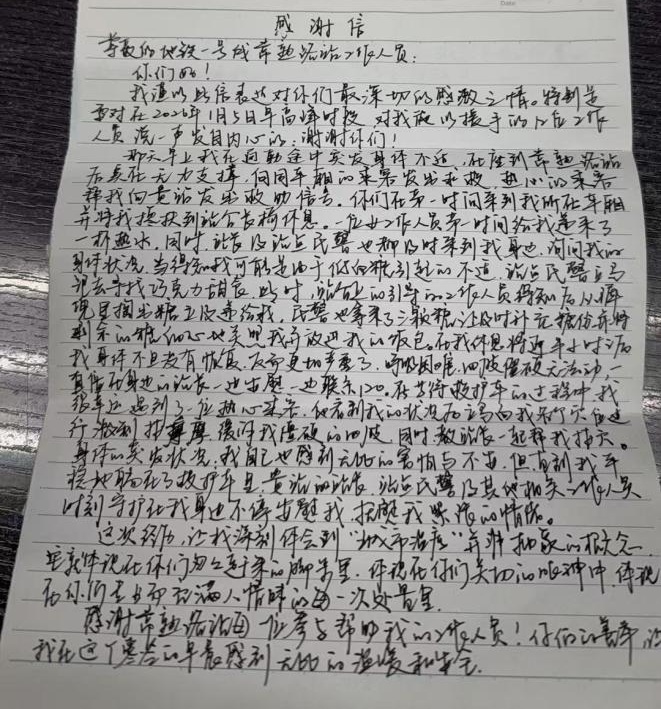 Date
感谢信
尊敬的地铁一号线常熟路站工作人员：
你们好！
我谨以此信表达对你们最深切的感激之情。特别是
要对在2026年1月5日早高峰时段，对我施以援手的各位工作
人员说一声发自内心的：谢谢你们！
那天早上我在通勤途中突发身体不适，在座到常熟路站
后实在无力支撑，向同车厢的乘客发出求救，热心的乘客
帮我向贵站发出求助信号。你们在第一时间来到我所在车厢
并将我搀扶到站台长椅休息。一位女工作人员第一时间给我递来了
一杯热水，同时，站长及站点民警也都及时来到我身边，询问我的
身体状况，当得知我可能是由于低血糖引起的不适，站点民警立马
去寻找巧克力糖果，此时，站台上的引导的工作人员得知后从裤
兜里掏出糖立段递给我，民警也拿来了三颗糖，让我及时补充糖份并将
剩余的糖细心地关照我并放进我的饭包。在我休息将近半小时之后
我身体不但没有恢复，反而更加严重了，呼吸困难，四肢僵硬无法动一
直留在身边的站长一边安慰一边联系120。在等待救护车的过程中，我
很幸运遇到了一位热心乘客，他看到我的状况后立马向我各个穴位进
行激刺按摩缓解我僵硬的四肢，同时教站长一起帮我按穴。
身体的突发状况，我自己也感到无比的害怕与不安，但直到我平
稳地躺在了救护车里贵站的站长、站点民警及其他相关工作人员
时刻守护在我身边不停安慰我，提醒我紧张的情绪。
这次经历，让我深刻体会到“城市温度”并非抽象的概念，
它就体现在你们匆匆赶来的脚步里，体现在你们关切的眼神中，体现
在你们专业而充满人情味的每一次处置里。
感谢常熟路站每一位参与帮助我的工作人员！你们的善举，让
我在这个寒冷的早晨感到无比的温暖和安全。